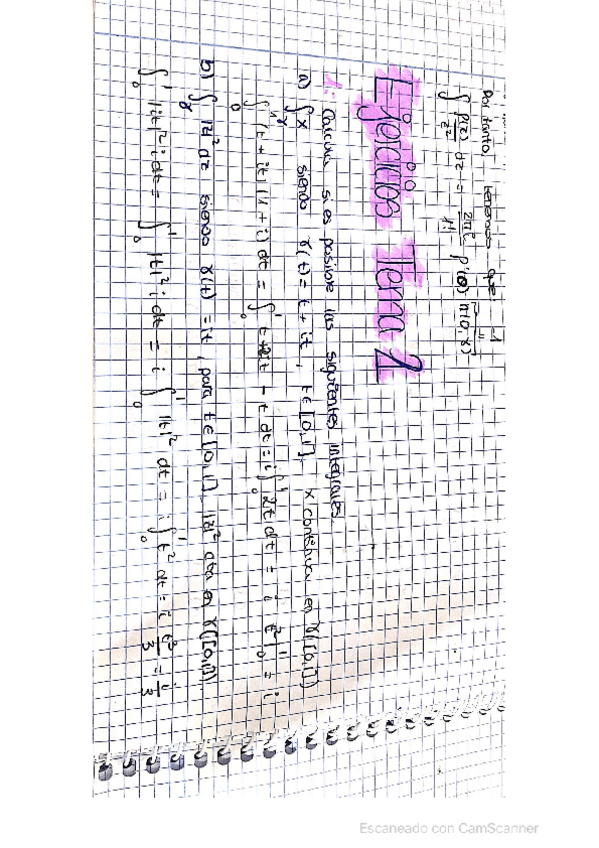 Por tanto, tenemos que
∫ p(z)/z² dz = 2πi/1! p'(0) n(0,γ)
Ejercicios Tema 2
1: Calcula si es posible las siguientes integrales.
a) ∫γ x siendo γ(t) = t + it, t∈[0,1]. x continua en γ([0,1])
∫₀¹ (t + it)(1 + i) dt = ∫₀¹ t + 2it - t dt = i ∫₀¹ 2t dt = i t²|₀¹ = i
b) ∫γ |z|² dz siendo γ(t) = it, para t∈[0,1]. |z|² en γ([0,1]).
∫₀¹ |it|² i dt = ∫₀¹ |t|² i dt = i ∫₀¹ |t|² dt = i ∫₀¹ t² dt = i t³/3 = i/3
Escaneado con CamScanner